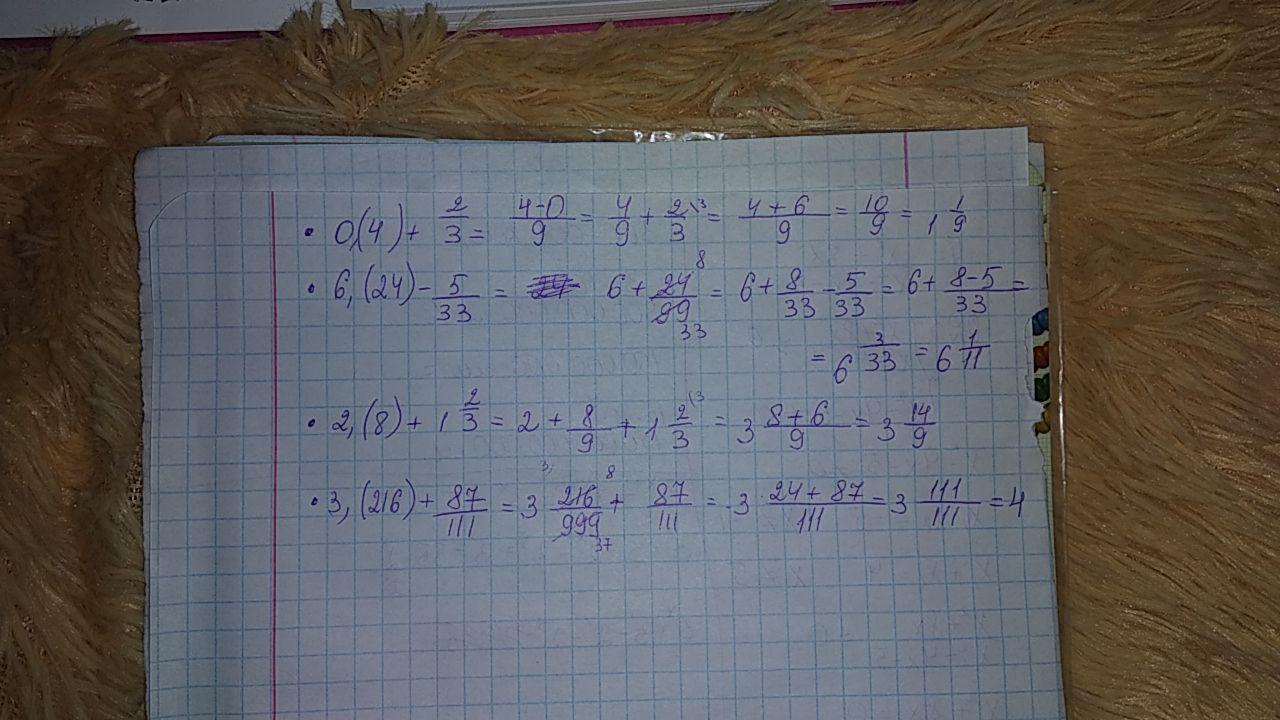 • 0,(4) + 2/3 = 4-0/9 = 4/9 + 2/3 \3 = 4+6/9 = 10/9 = 1 1/9
• 6,(24) - 5/33 = 6 + 24/99 8 33 = 6 + 8/33 - 5/33 = 6 + 8-5/33 =
= 6 3/33 = 6 1/11
• 2,(8) + 1 2/3 = 2 + 8/9 + 1 2/3 \3 = 3 8+6/9 = 3 14/9
• 3,(216) + 87/111 = 3 216/999 8 37 + 87/111 = 3 24+87/111 = 3 111/111 = 4